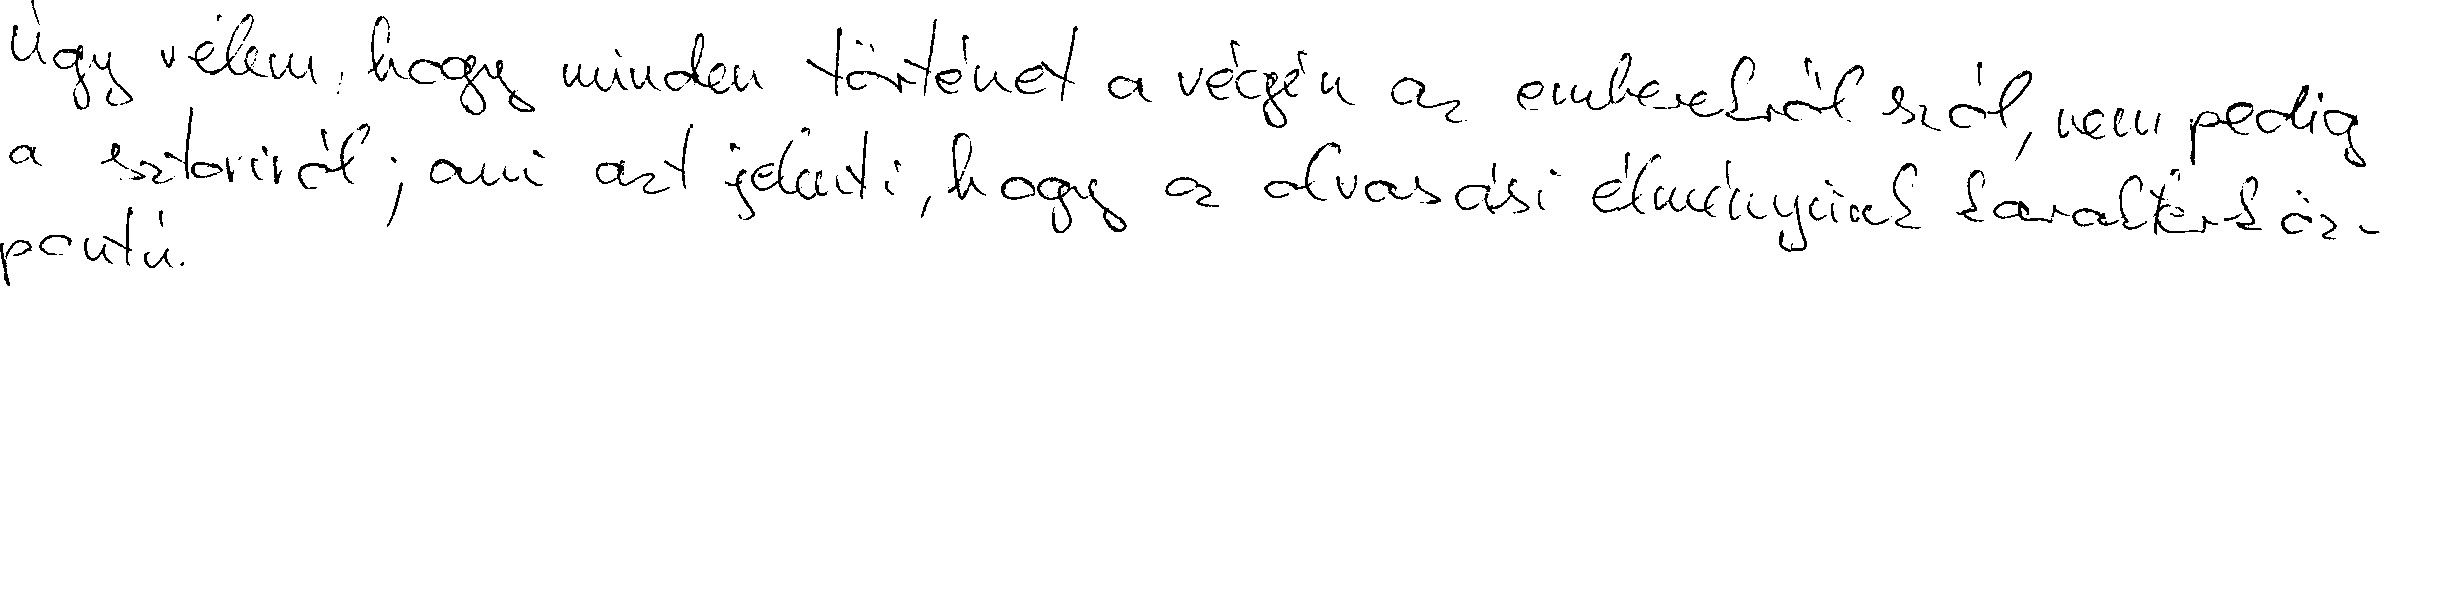 Úgy vélem, hogy minden történet a végén az emberekről szól, nem pedig
a sztoriról; ami azt jelenti, hogy az olvasási élményünk karakterköz-
pontú.